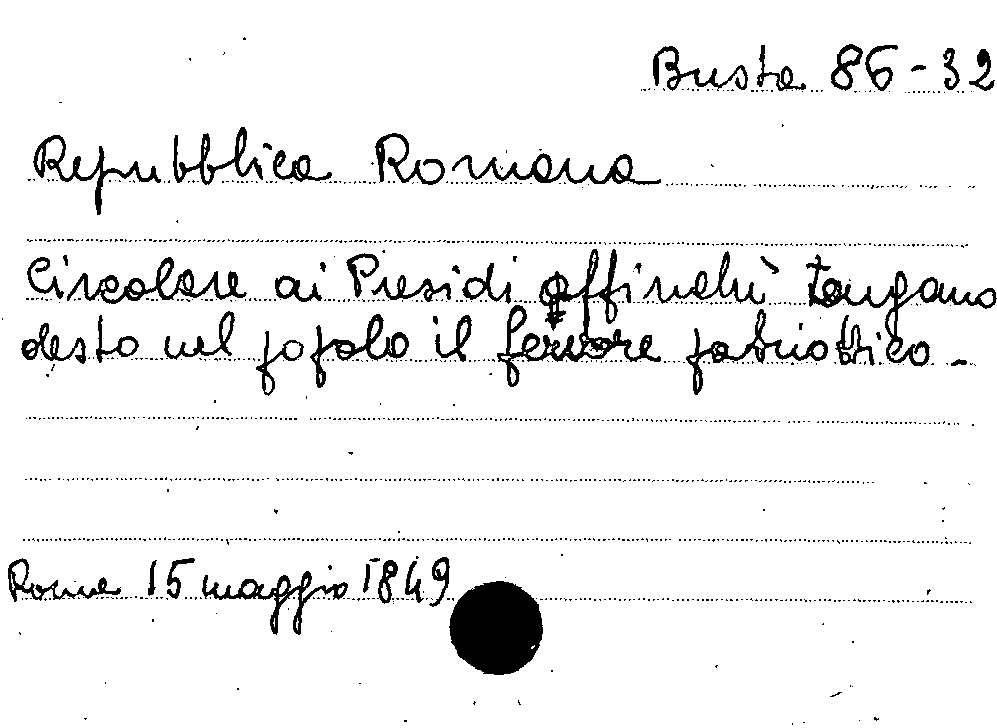 Busta 86-32
Repubblica Romana
Circolare ai Presidi affinchè tengano
desto nel popolo il fervore patriottico.
Roma 15 maggio 1849